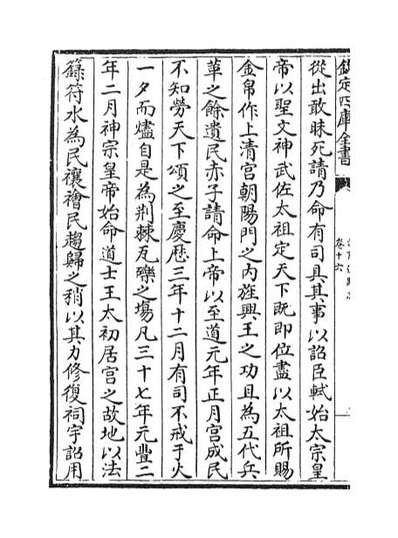 欽定四庫全書
卷十六
從出敢昧死請乃命有司具其事以詔臣軾始太宗皇
帝以聖文神武佐太祖定天下既即位盡以太祖所賜
金帛作上清宫朝陽門之内旌興王之功且為五代兵
革之餘遺民赤子請命上帝以至道元年正月宫成民
不知勞天下頌之至慶厯三年十二月有司不戒于火
一夕而燼自是為荆棘瓦礫之場凡三十七年元豐二
年二月神宗皇帝始命道士王太初居宫之故地以法
籙符水為民禳禬民趨歸之稍以其力修復祠宇詔用